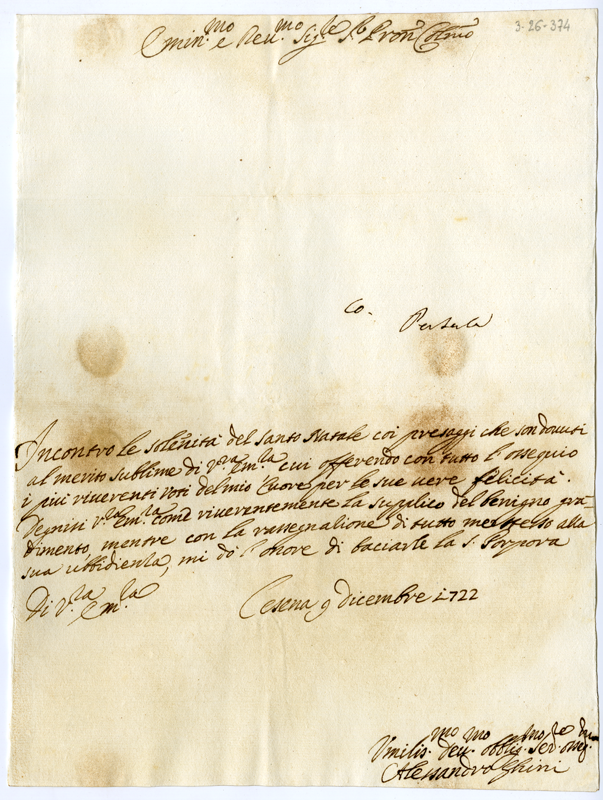 3-26-374
Emin.mo e Reu.mo Sig.re S.r Pron Colmo
Co. Persula
Incontro le solennità del Santo Natale coi presaggi che son dovuti
al merito sublime di V.ra Em.za cui offerendo con tutto l'ossequio
i più riuerenti voti del mio Cuore per le sue vere felicità.
Degnisi V.ra Em.za come riuerentemente la supplico del benigno gra=
dimento, mentre con la rassegnatione di tutto me stesso alla
sua ubbidienza, mi dò l'onore di baciarle la S. Porpora
Di V.ra Em.za
Cesena 9 dicembre 1722
Vmilis.mo deu.mo obblig.mo Ser.re osseq.
Alessandro Ghini